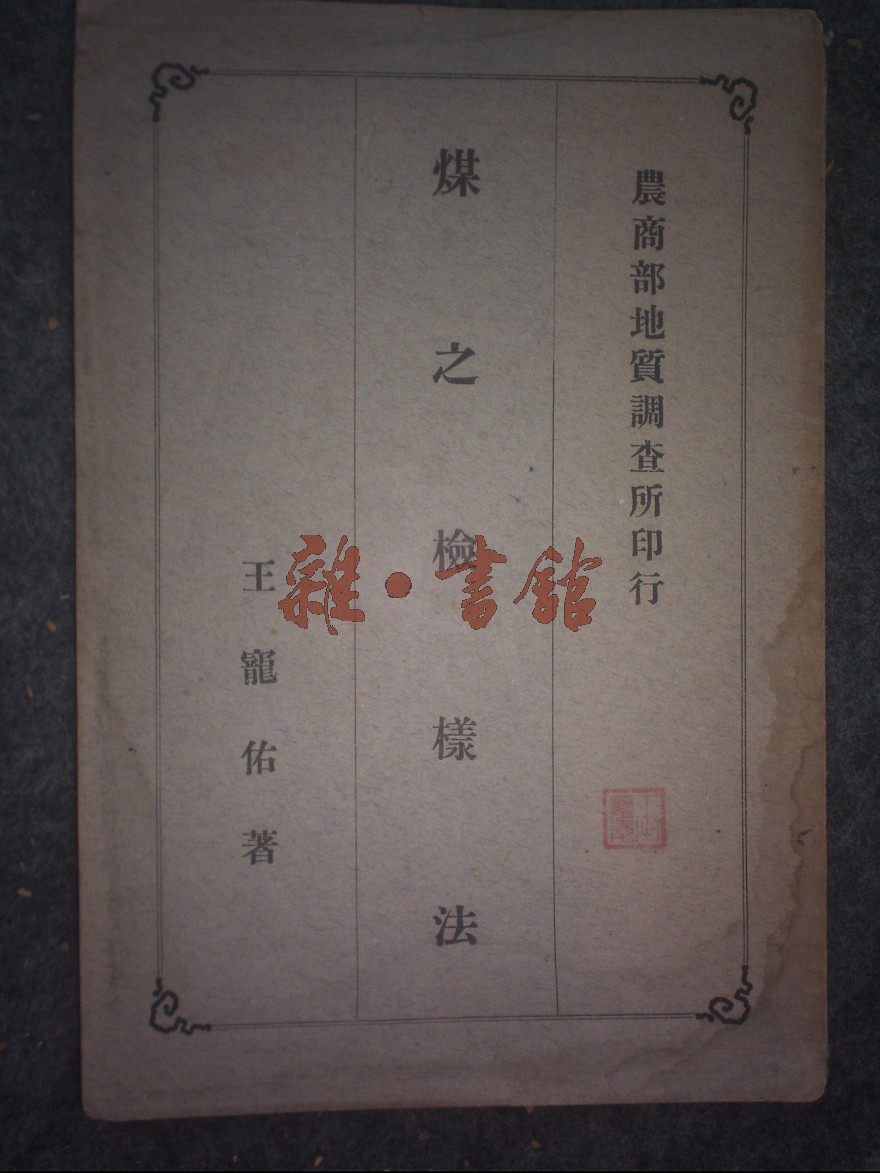 農商部地質調查所印行
煤之檢樣法
王寵佑著
雜·書館